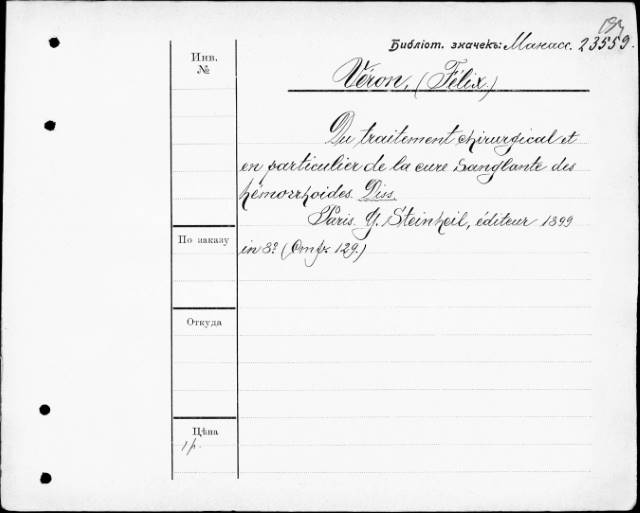 Библіот. значекъ: Манасс. 23559.
Инв.
№
Véron, (Félix.)
Du traitement chirurgical et
en particulier de la cure sanglante des
hémorrhoides. Diss.
Paris. G. Steinheil, éditeur 1899
in 8º (129.)
По заказу
Откуда
Цѣна
1 р.